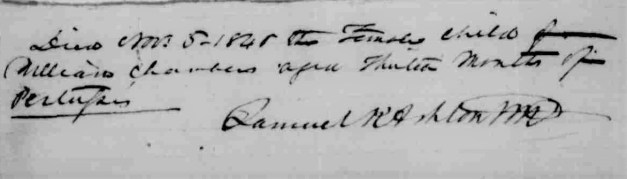 Died Nov 5-1848 the Female child of
William Chambers aged Thirteen Months of
Pertussis
Samuel K Ashton MD